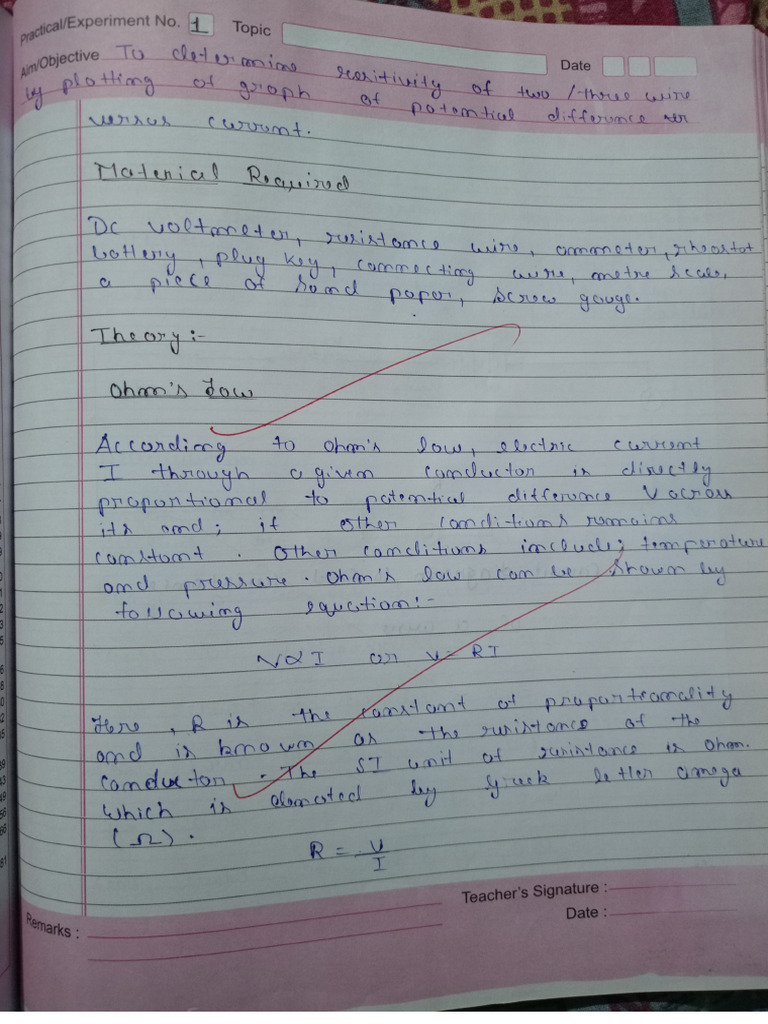 Practical/Experiment No. 1 Topic
Date
Aim/Objective To determine resitivity of two / three wire
by plotting of graph of potential difference
versus current.
Material Required
Dc voltmeter, resistance wire, ammeter, rheostat
battery, plug key, connecting wire, metre scale,
a piece of sand paper, screw gauge.
Theory:-
Ohm's Law
According to ohm's law, electric current
I through a given conductor is directly
proportional to potential difference V across
its end; if other conditions remains
constant. Other conditions include; temperature
and pressure. Ohm's law can be shown by
following equation:-
V∝I or V= RI
Here, R is the constant of proportionality
and is known as the resistance of the
conductor. The SI unit of resistance is ohm.
which is denoted by greek letter omega
(Ω).
R = V/I
Teacher's Signature :
Date :
Remarks :